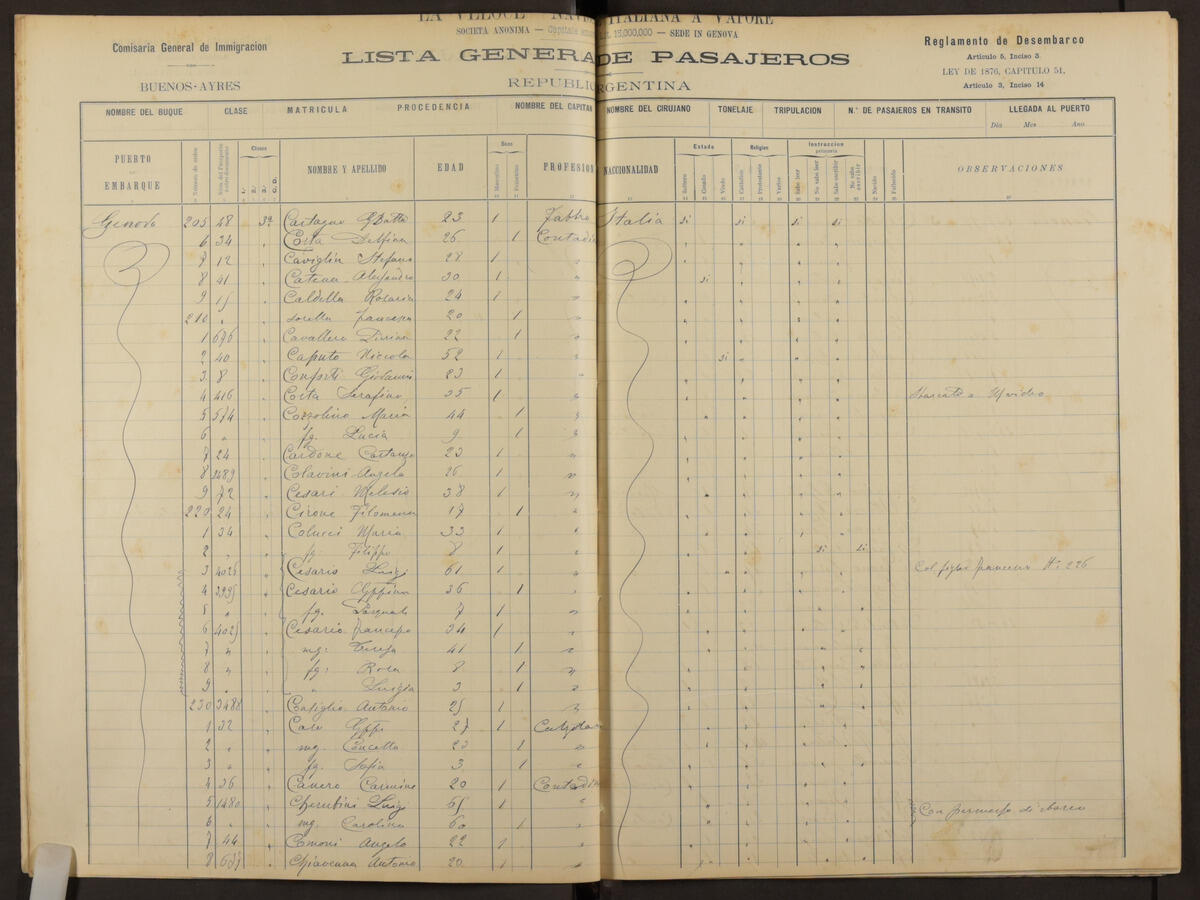 LA VELOCE NAVI ITALIANA A VAPORE
SOCIETÀ ANONIMA — Capitale L. 15,000,000 — SEDE IN GENOVA
Comisaria General de Immigracion
BUENOS-AYRES
LISTA GENERA DE PASAJEROS
REPUBLIC RGENTINA
Reglamento de Desembarco
Articulo 5, Inciso 3
LEY DE 1876, CAPITULO 51,
Articulo 3, Inciso 14
NOMBRE DEL BUQUE CLASE MATRICULA PROCEDENCIA NOMBRE DEL CAPITAN NOMBRE DEL CIRUJANO TONELAJE TRIPULACION N.° DE PASAJEROS EN TRANSITO LLEGADA AL PUERTO
Dia Mes Ano
PUERTO EMBARQUE Clases NOMBRE Y APELLIDO EDAD Sexo Masculino Femenino PROFESION NACCIONALIDAD Estado Soltero Casado Viudo Religion Catolico Protestante Varios Instruccion primaria Sabe leer No sabe leer Sabe escribir No sabe escribir Nacido Fallecido OBSERVACIONES
Genova 205 48 3ª Castagno GBatta 23 1 Fabbro Italia si si si si
6 34 Costa Delfina 26 1 Contadin
7 12 Caviglia Stefano 28 1
8 41 Catena Alejandro 30 1 si
9 15 Caldella Rosario 24 1
210 " sorella francesca 20 1
1 676 Cavallero 22 1
2 40 Caputo Niccola 52 1 si
3 8 Conforti Giovanni 23 1
4 416 Costa Serafino 35 1
5 574 Cozzolino Maria 44 1
6 " fg. Lucia 9 1
7 24 Cardone Costanzo 23 1
8 3489 Clavini Angelo 26 1
9 72 Cesari 38 1
220 24 Cirone Filomena 17 1
1 34 Colucci Maria 33 1
2 " fg. Filippo 8 1 si si
3 4026 Cesario Luigi 61 1 Col figlio francesco N: 226
4 3995 Cesario Gppina 36 1
5 " fg. Pasquale 7 1
6 4025 Cesario francesco 34 1
7 " mg: Teresa 41 1
8 " fg: Rosa 8 1
9 " " Luigia 3 1
230 3488 Consiglio Antonio 25 1
1 32 Caso Gppe 27 1
2 " mg. Concetta 23 1
3 " fg. Sofia 3 1
4 36 Canero Carmine 20 1 Contadin
5 1480 Cherubini Luigi 65 1 Con permesso di sbarco
6 " mg. Carolina 60 1
7 44 Comoni Angelo 22 1
8 Chiavenna Antonio 20 1